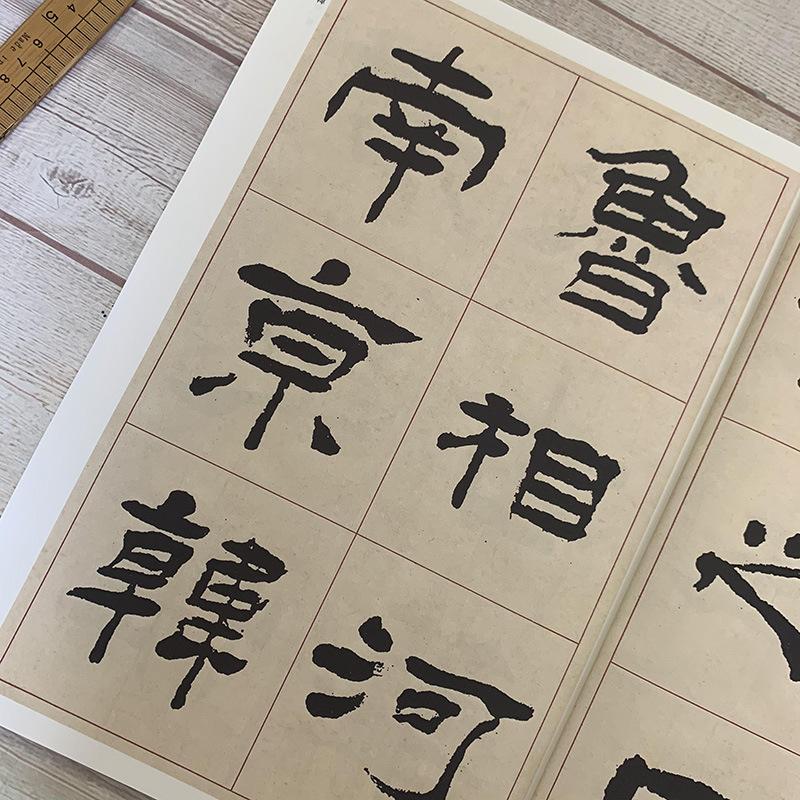 魯相河
南京韓
4 5 6 7 8
Made in